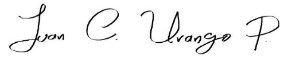 Juan C. Urango P.